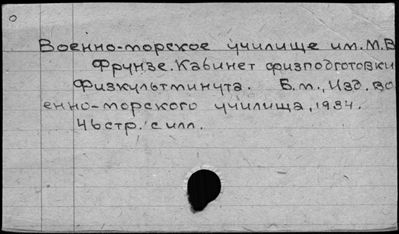 Военно-морское училище им. М.В
Фрунзе. Кабинет физподготовки
Физкультминута. Б.м., Изд. во
енно-морского училища, 1934.
46 стр. с илл.